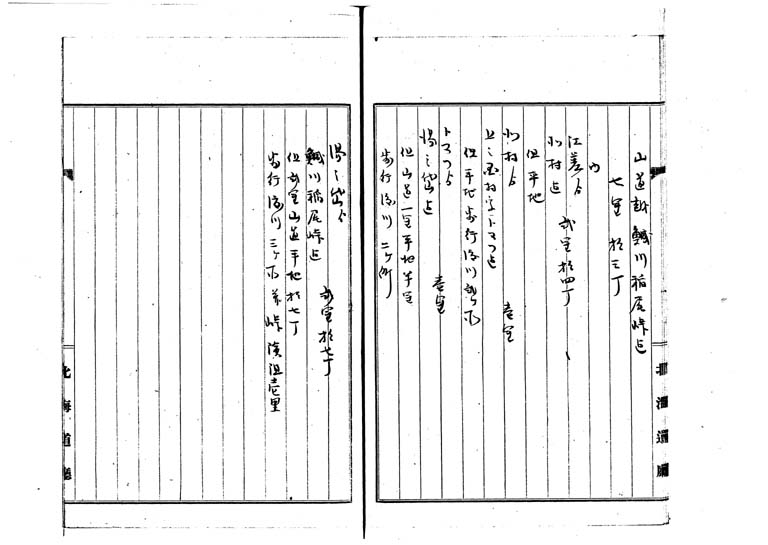 山道越鶉川稲尾峠迄
七里拾三丁
内
江差ゟ
小村迄 弐里拾四丁
但平地
小村ゟ
上之国村字トマフ迄 壱里
但平地歩行渡川弐ケ所
トマフゟ
湯之岱迄 壱里
但山道一里平地半里
歩行渡川二ケ所
北海道庁
湯之岱ゟ
鶉川稲尾峠迄 弐里拾七丁
但弐里山道平地拾七丁
歩行渡川三ケ所 峠 壱里
北海道庁